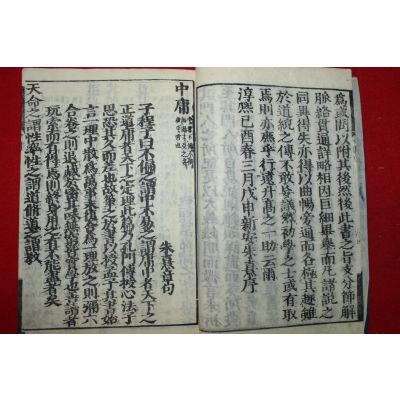 為或問以附其後然後此書之旨支分節解
脉絡貫通詳略相因巨細畢舉而凡諸說之
同異得失亦得以曲暢旁通而各極其趣雖
於道統之傳不敢妄議然初學之士或有取
焉則亦庶乎行遠升高之一助云爾
淳熙己酉春三月戊申新安朱熹序
中庸
朱熹章句
子程子曰不偏之謂中不易之謂庸中者天下之
正道庸者天下之定理此篇乃孔門傳授心法子
思恐其久而差也故筆之於書以授孟子其書始
言一理中散為萬事末復合為一理放之則彌六
合卷之則退藏於密其味無窮皆實學也善讀者
玩索而有得焉則終身用之有不能盡者矣
天命之謂性率性之謂道脩道之謂教